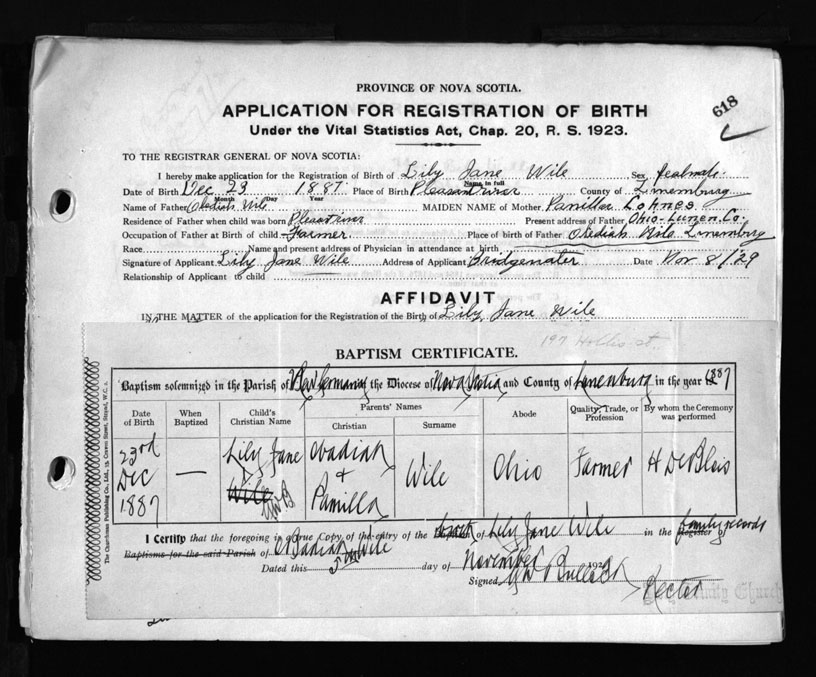 PROVINCE OF NOVA SCOTIA.
618
APPLICATION FOR REGISTRATION OF BIRTH
Under the Vital Statistics Act, Chap. 20, R. S. 1923.
TO THE REGISTRAR GENERAL OF NOVA SCOTIA:
I hereby make application for the Registration of Birth of Lily Jane Wile Sex
Name, in full
Date of Birth Dec 23 1887 Place of Birth Pleasant river County of Lunenburg
Month Day Year
Name of Father Obediah Wile MAIDEN NAME of Mother Pamilla Cohnes
Residence of Father when child was born Present address of Father Ohio Lunen. Co.
Occupation of Father at Birth of child Farmer. Place of birth of Father Obediah Wile Lunemburg
Race Name and present address of Physician in attendance at birth
Signature of Applicant Lily Jane Wile Address of Applicant Bridgewater Date Nov 8/29
Relationship of Applicant to child
AFFIDAVIT
IN THE MATTER of the application for the Registration of the Birth of Lily Jane Wile
197 Hollis st
BAPTISM CERTIFICATE.
Baptism solemnized in the Parish of New Germany the Diocese of Nova Scotia and County of Lunenburg in the year 1887
Date of Birth When Baptized Child's Christian Name Parents' Names Christian Surname Abode Quality, Trade, or Profession By whom the Ceremony was performed
23rd Dec 1887 — Lily Jane Wile Obadiah + Pamilla Wile Ohio Farmer H DeBlois
I Certify that the foregoing is a true Copy of the entry of the of Lily Jane Wile in the family records Register of
Baptisms for the said Parish of Obadiah Wile
Dated this day of November 192
Signed Rector
The Churchman Publishing Co., Ltd.